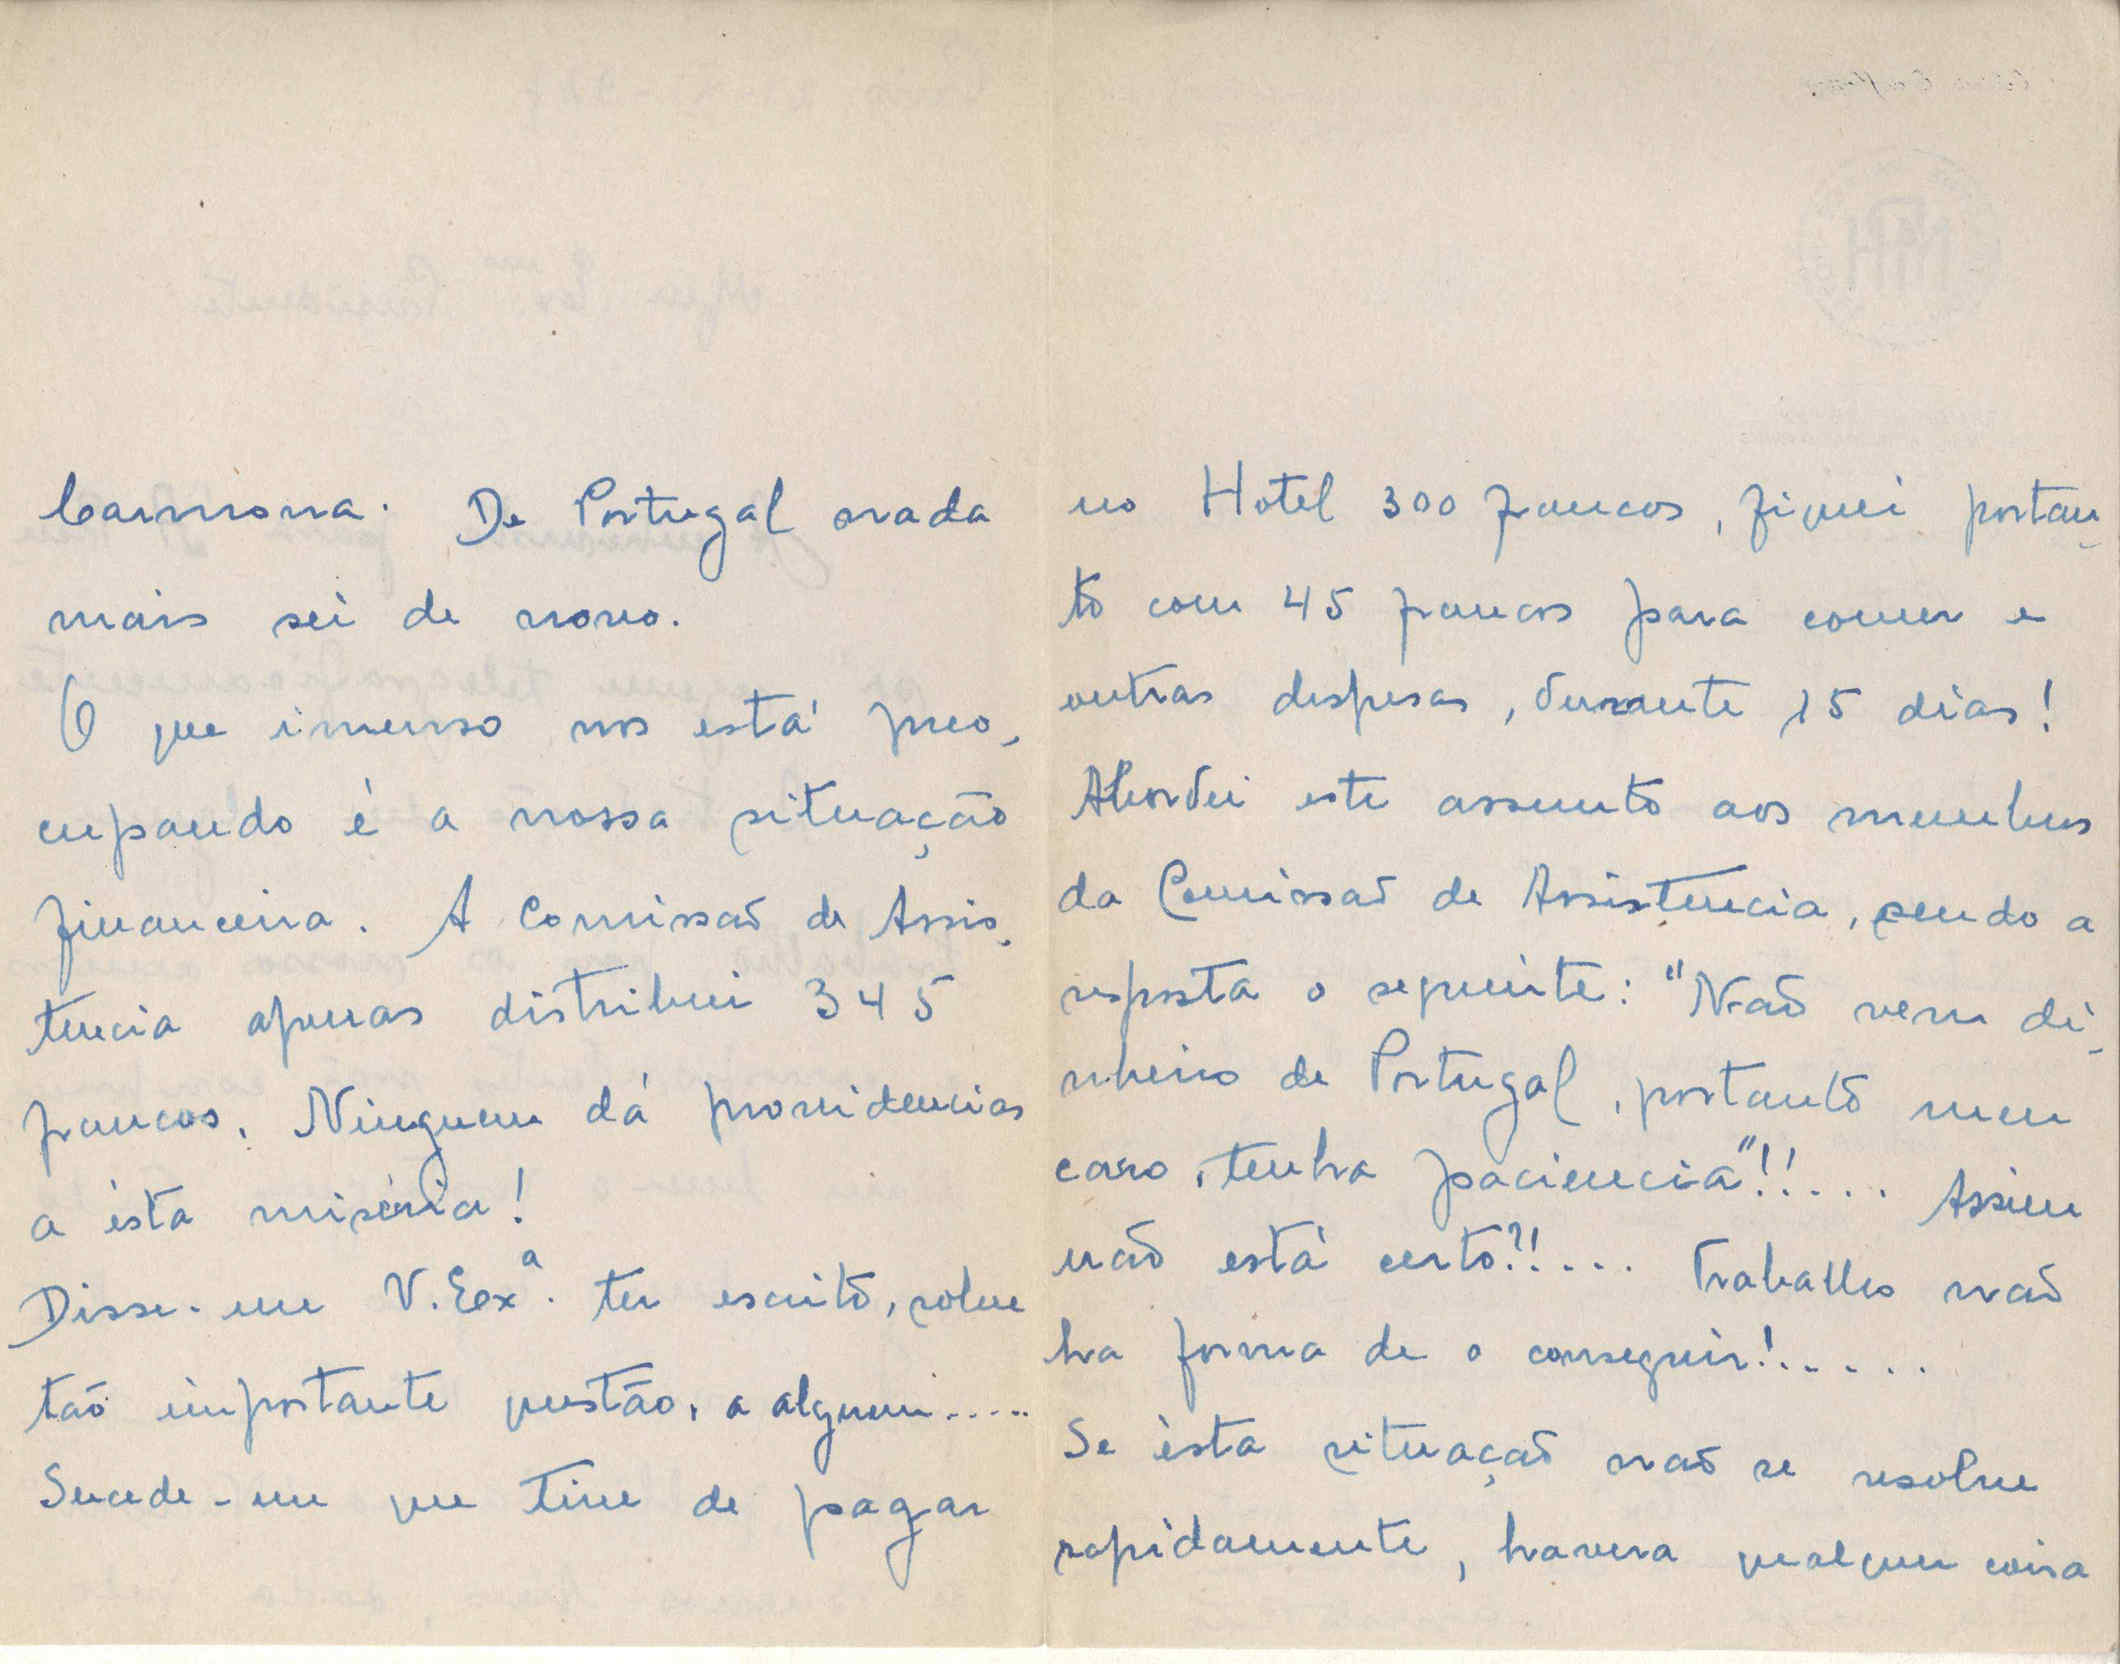 Carmona. De Portugal nada
mais sei de novo.
O que imenso nos está preo-
cupando é a nossa situação
financeira. A Comissaõ de Assis-
tencia apenas distribui 345
francos. Ninguem dá providencias
a ésta miséria!
Disse-me V. Exª. ter escrito, sobre
taõ importante questão, a alguem.....
Sucede-me que tive de pagar
no Hotel 300 francos, fiquei portan-
to com 45 francos para comer e
outras despesas, durante 15 dias!
Abordei este assunto aos membros
da Comissaõ de Assistencia, sendo a
resposta o seguinte: "Naõ vem di-
nheiro de Portugal, portanto meu
caro, tenha paciencia"!!.... Assim
naõ está certo?!.... Trabalho naõ
ha forma de o conseguir!.....
Se ésta situaçaõ naõ se resolve
rapidamente, havera qualquer coisa